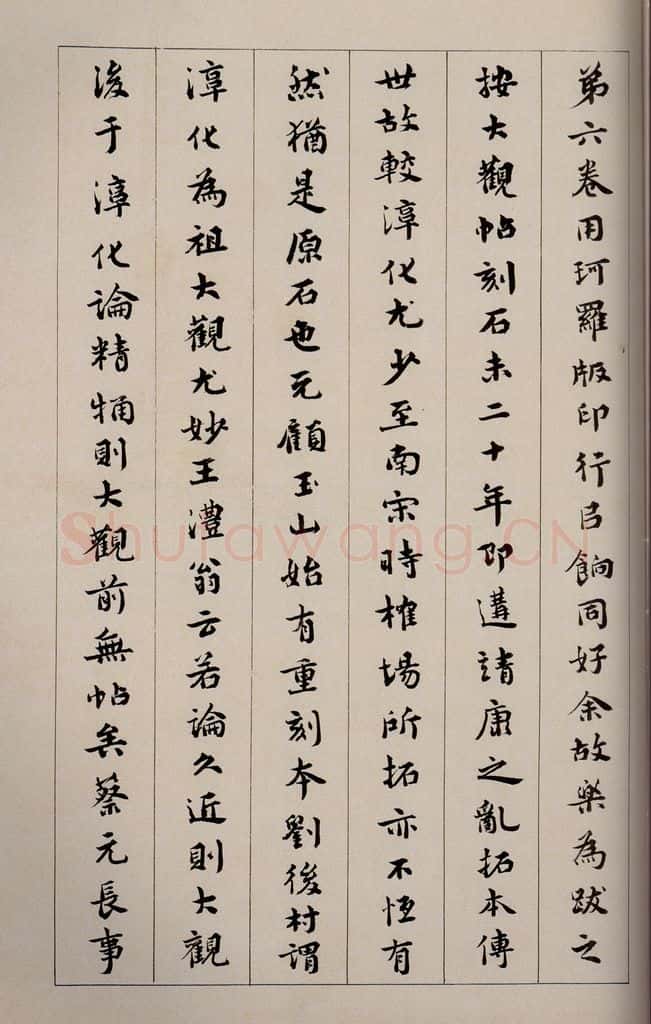 第六卷用珂羅版印行㠯餉同好余故樂為跋之
按大觀帖刻石未二十年即遘靖康之亂拓本傳
世故較淳化尤少至南宋時榷場所拓亦不恆有
然猶是原石也元顧玉山始有重刻本劉後村謂
淳化為祖大觀尤妙王澧翁云若論久近則大觀
後于淳化論精牰則大觀前無帖矣蔡元長事
Shufawang.CN